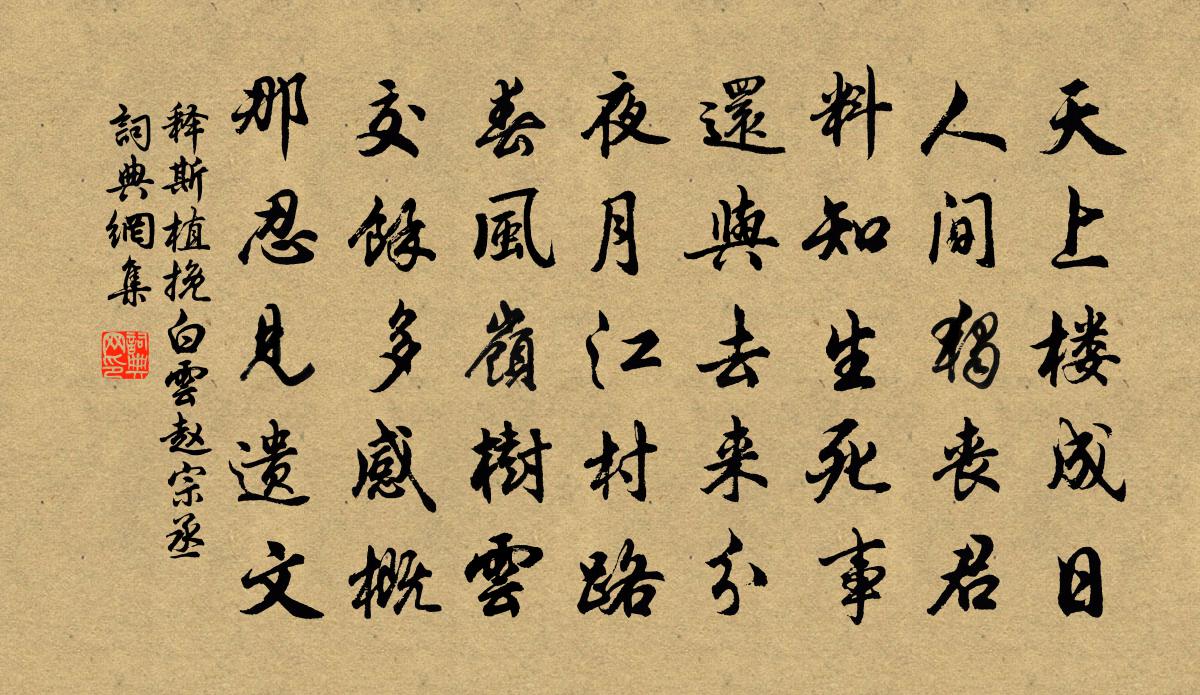 天上楼成日
人间獨丧君
料知生死事
還與去来分
夜月江村路
春風嶺樹雲
交餘多感概
那忍见遗文
释斯植挽白雲赵宗丞
詞典網集
詞典网印